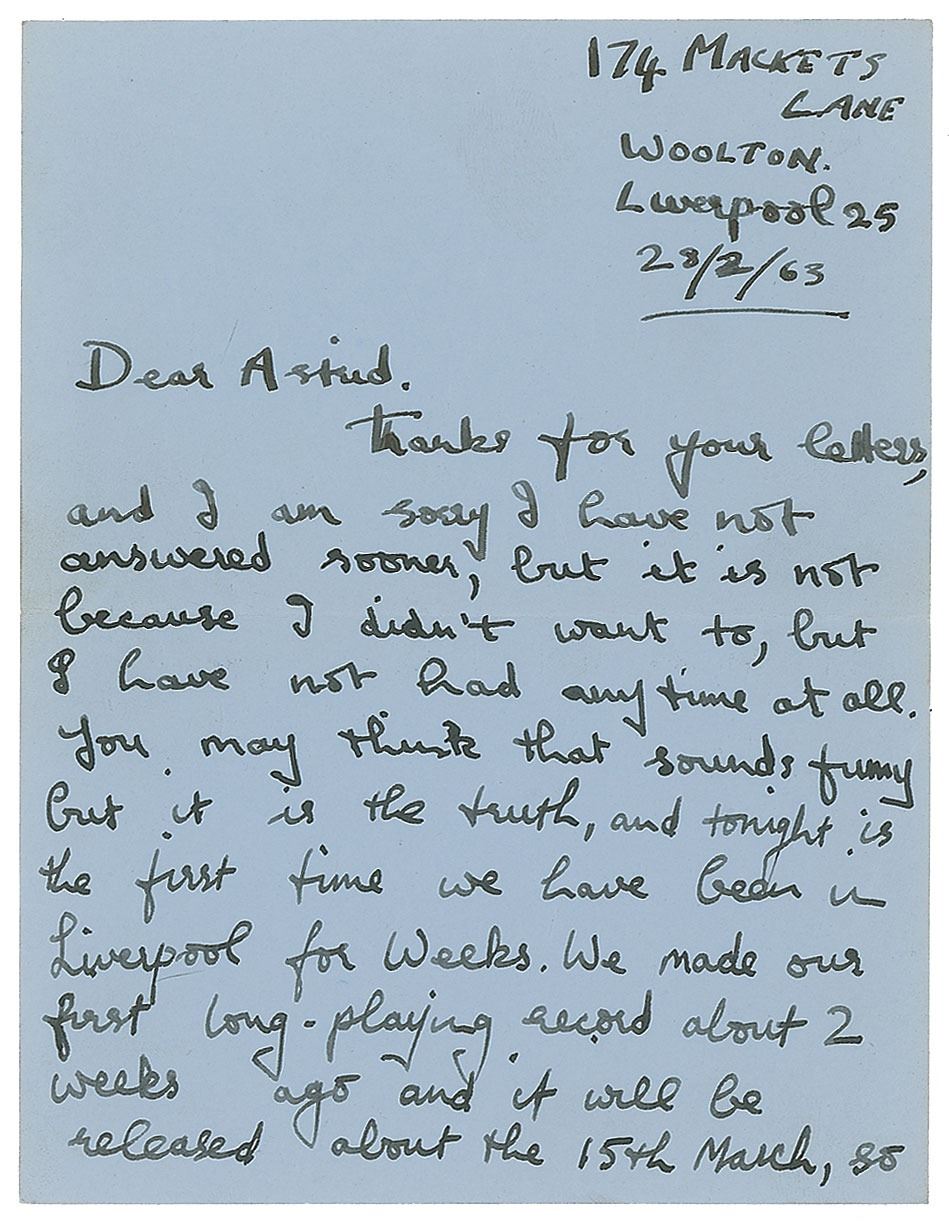 174 MACKETS
LANE
WOOLTON.
Liverpool 25
28/2/63
Dear Astrid.
Thanks for your letters,
and I am sorry I have not
answered sooner, but it is not
because I didn't want to, but
I have not had any time at all.
You may think that sounds funny
but it is the truth, and tonight is
the first time we have been in
Liverpool for Weeks. We made our
first long-playing record about 2
weeks ago and it will be
released about the 15th March, so